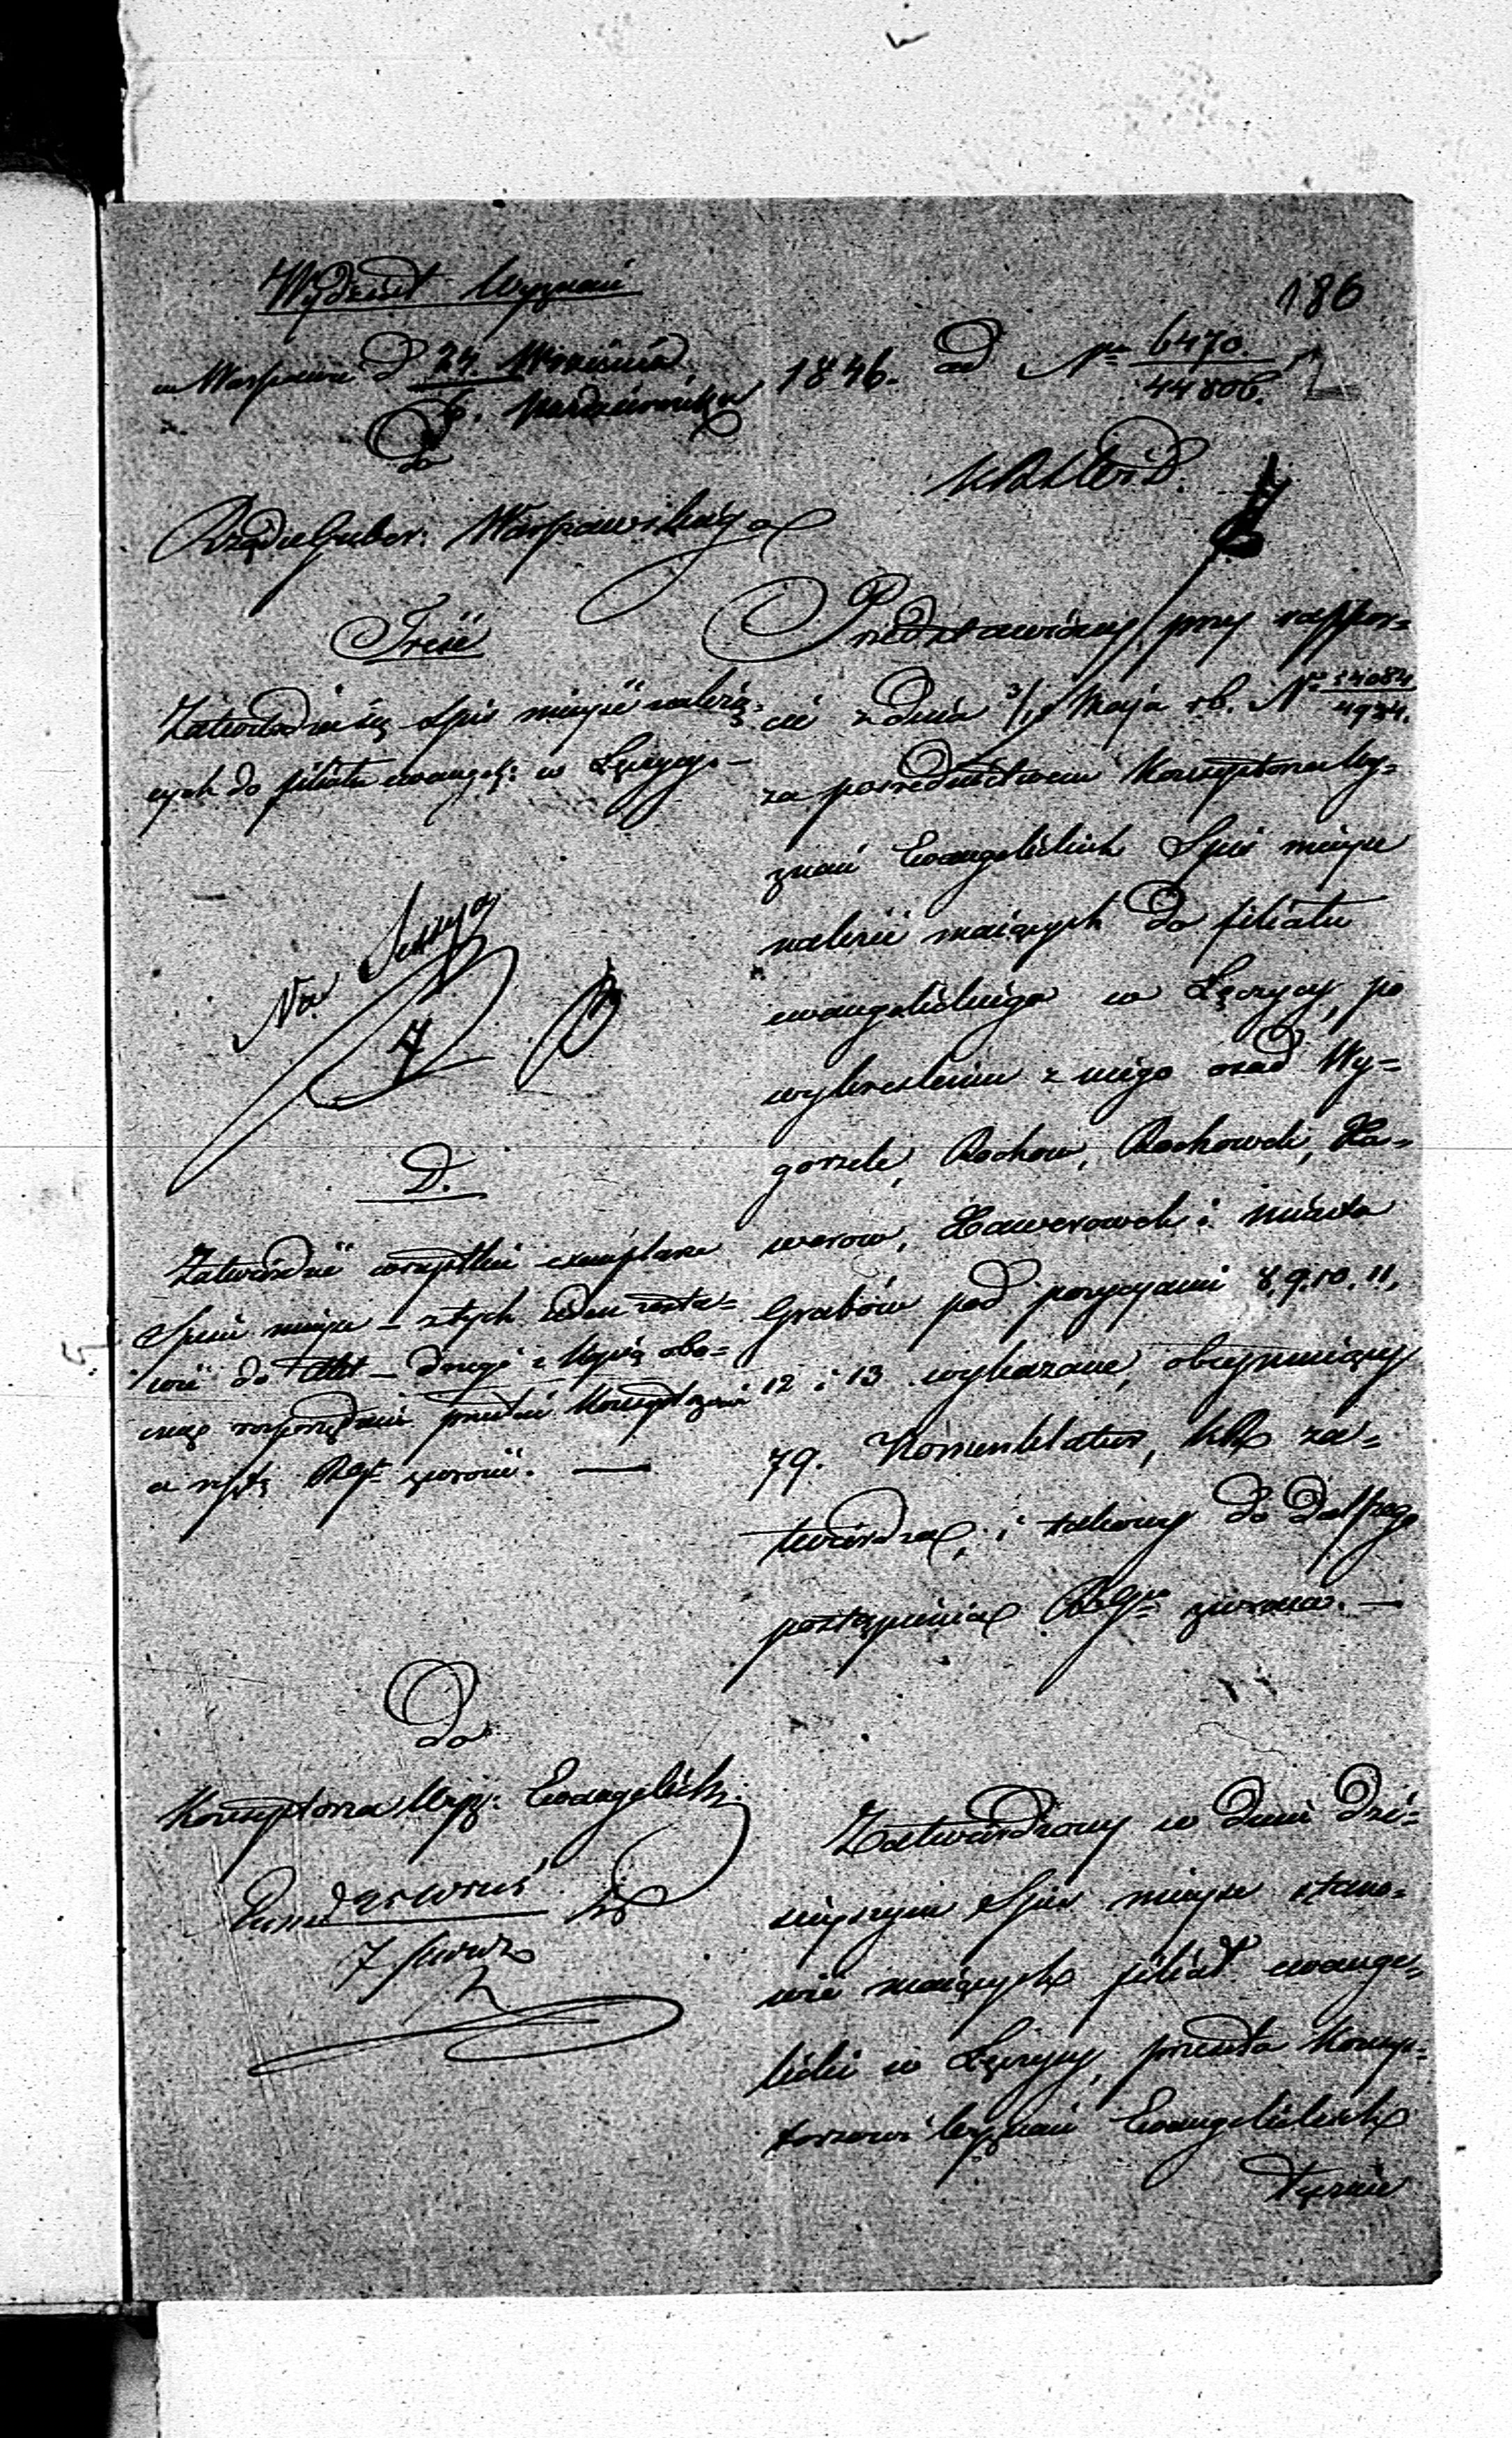 186
Wydział Wyznań
w Warszawie d 24. Września
6. Października 1846. ad Nr 6470.
44806.
Do
Rządu Guber: Warszawskiego
Treść
Zatwierdza się Spis miejsc należą-
cych do filiału ewangel: w Łęczycy. –
Na Sessya
D.
Zatwierdzić wszystkie exemplarze
Spisu miejsc – z tych jeden zosta-
wić do Akt – drugi z kopią obe-
cnego rozporządzenia przesłać Konsystorzowi
a resztę RGu zwrócić. —
Przedstawiony przy rappor-
cie z dnia 3/15 Maja rb. Nr 54084
4934.
za pośrednictwem Konsystorza Wy-
znań Ewangelickich Spis miejsc
należeć mających do filiału
ewangelickiego w Łęczycy, po
wykreśleniu z niego osad Wy-
gorzele, Rochow, Rochowek, Xa-
werow, Xawerowek i miasta
Grabów pod pozycyami 8. 9. 10. 11.
12 i 13 wykazane, obejmujący
79. Nomenklatur, KR za-
twierdza, i takowy do dalszego
postąpienia RGu zwraca. —
Do
Konsystorza Wyz: Ewangelick:
7
Zatwierdzony w dniu dzi-
siejszym Spis miejsc stano-
wić mających filiał ewange-
licki w Łęczycy, przesyła Konsys-
torzowi Wyznań Ewangelickich